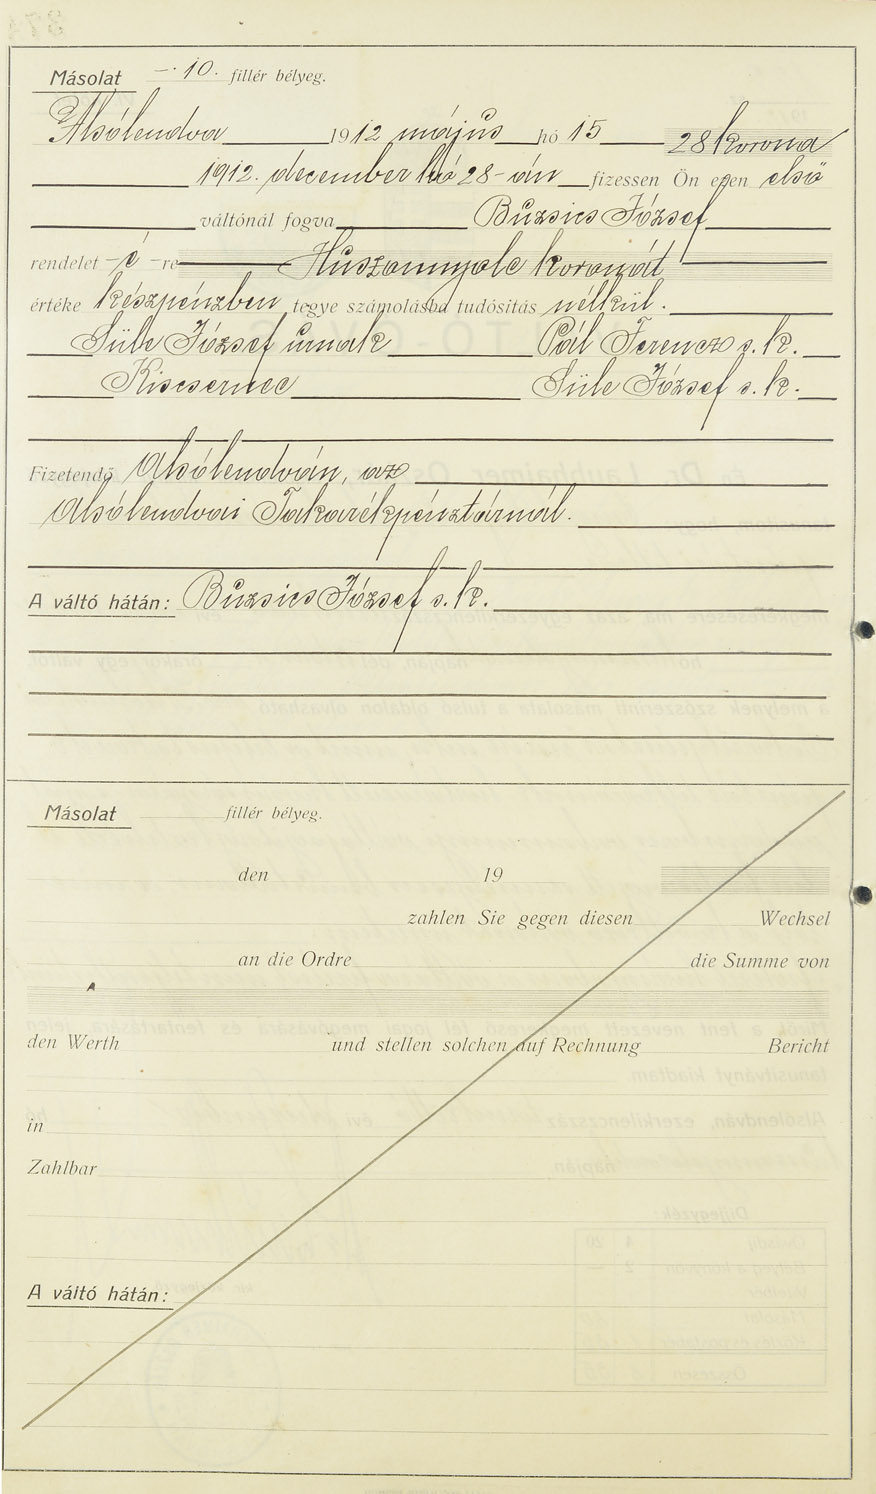 Másolat —·10. fillér bélyeg.
Alsólendva 1912 május hó 15 28 korona
1912. december hó 28-án fizessen Ön ezen első
váltónál fogva Buzsics József
rendelet -é -re Huszonnyolc koronát
értéke készpénzben tegye számolásba tudósítás nélkül.
Süle József úrnak Pál Ferencz s. k.
Kiscsernec Süle József s. k.
Fizetendő Alsólendván, az
Alsólendvai Takarékpénztárnál.
A váltó hátán: Buzsics József s. k.
Másolat fillér bélyeg.
den 19
zahlen Sie gegen diesen Wechsel
an die Ordre die Summe von
den Werth und stellen solchen auf Rechnung Bericht
in
Zahlbar
A váltó hátán: